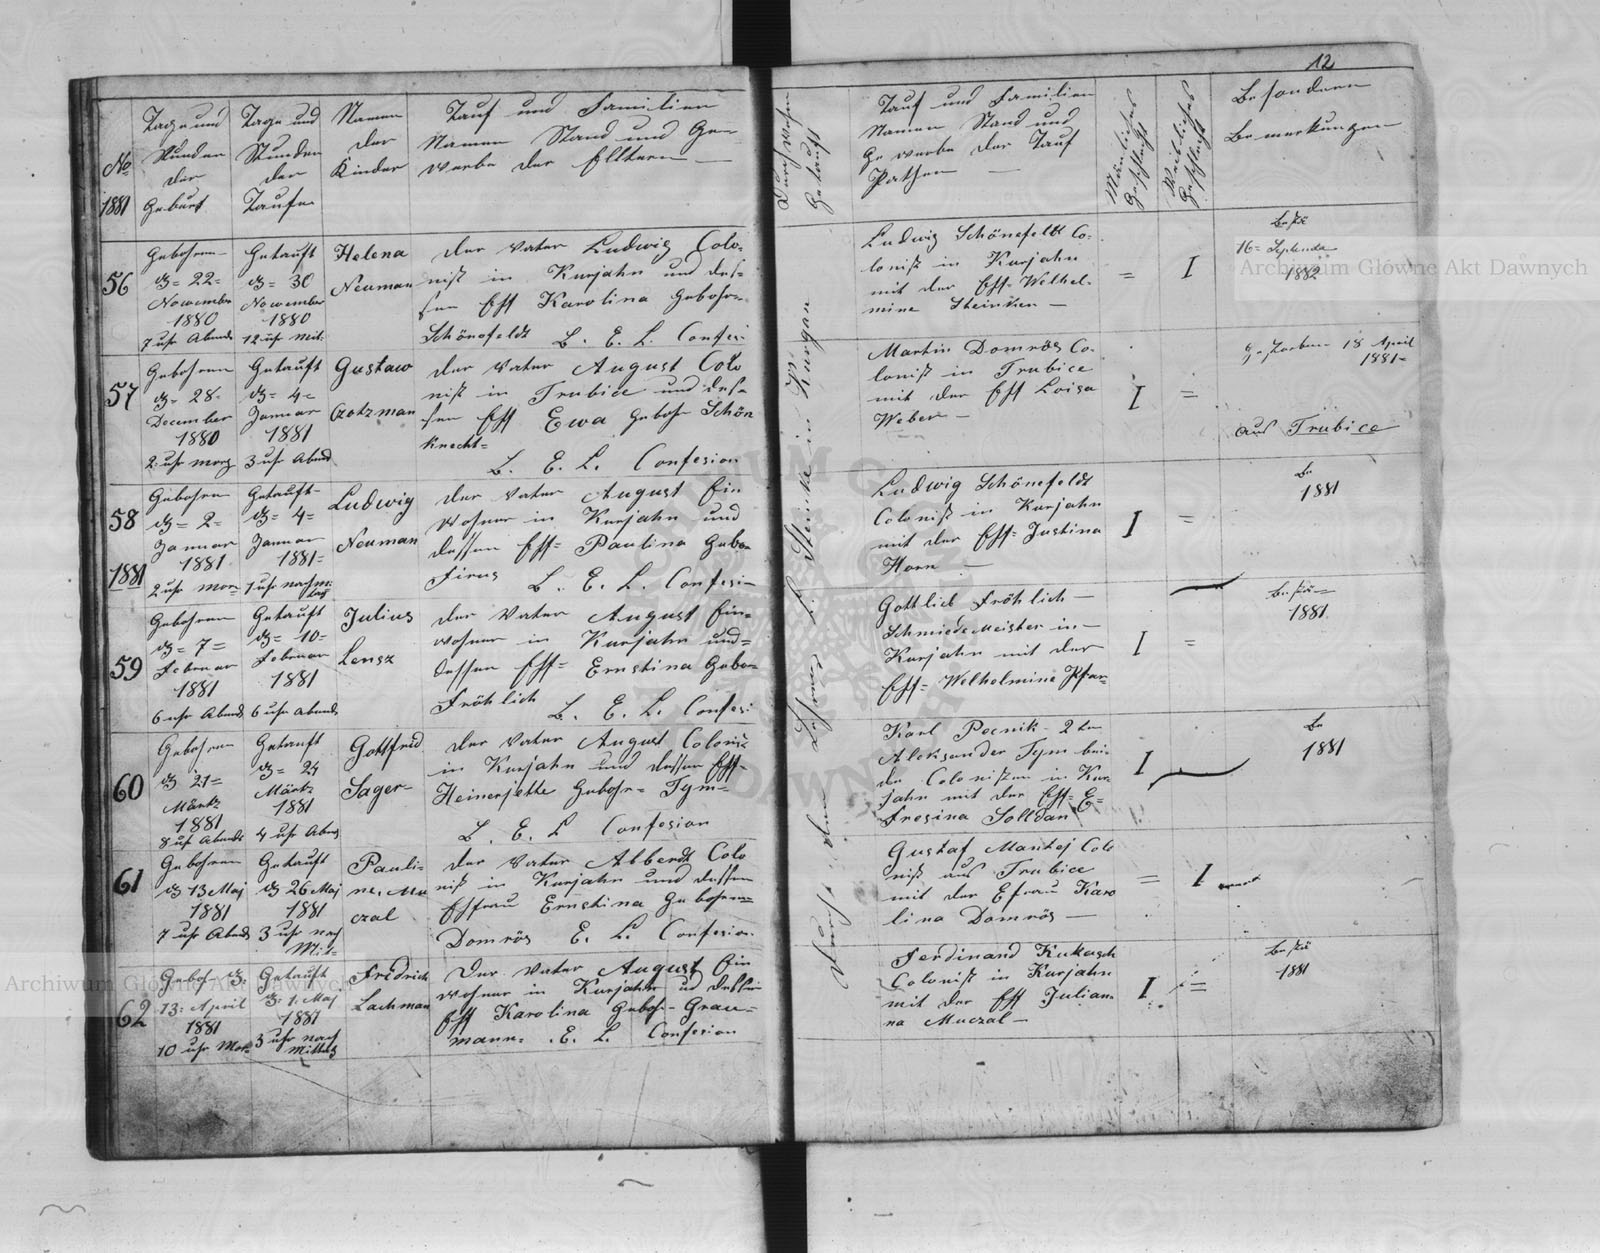 12
No
1881
Tage und
Stunden
der
Geburt
Tage und
Stunden
der
Taufe
Namen
der
Kinder
Tauf und Familien
Namen Stand und Ge-
werbe der Elltern —
Durch wehm
Getauft
Tauf und Familien
Namen Stand und
Gewerbe der Tauf
Pathen —
Mänliches
Geschlecht
Weibliches
Geschlecht
Besondere
Bemerkungen
56
Gebohren
d= 22=
November
1880
7 uhr Abends
Getauft
d= 30
November
1880
12 uhr Mit:
Helena
Neuman
der Vater Ludwig Colo-
nist in Kurjahn und des-
sen Eff Karolina Gebohr=
Schönefeldt L. E. L. Confesi-
Ludwig Schönefeldt Co-
lonist in Kurjahn
mit der Eff= Welhel-
mine Steinken —
=
I
16= Septembr
1882
57
Gebohren
d= 28=
December
1880
2 uhr morg
Getauft
d= 4=
Januar
1881
3 uhr Abend
Gustaw
Czotzman
der Vater August Colo
nist in Trubice und des-
sen Eff Ewa Gebohr Schön
knecht=
L. E. L. Confesion
Martin Domrös Co-
lonist in Trubice
mit der Eff Loisa
Weber —
I
=
gestorben 18 April
1881=
aus Trubice
58
1881
Gebohren
d= 2=
Januar
1881
2 uhr mor=
Getauft
d= 4=
Januar
1881=
1 uhr nachmi-
tag
Ludwig
Neuman
der Vater August Ein
wohner in Kurjahn und
dessen Eff= Paulina Gebo=
Firus L. E. L. Confesi—
Ludwig Schönefeldt
Colonist in Kurjahn
mit der Eff= Justina
Horn —
I
=
Be
1881
59
Gebohren
d= 7=
Februar
1881
6 uhr Abends
Getauft
d= 10=
Februar
1881
6 uhr abends
Julius
Lensz
der Vater August Ein=
wohner in Kurjahn und=
dessen Eff= Ernstina Gebo=
Fröhlich L. E. L. Confesi-
Gottlieb Fröhlich —
Schmiede Meister in—
Kurjahn mit der
Eff= Welhelmine
I
=
1881
60
Gebohren
d 21=
Märtz
1881
8 uhr Abends
Getauft
d= 24
Märtz
1881
4 uhr Abends
Gottfried
Sager-
der Vater August Colonis
in Kurjahn und dessen Eff=
Heinerjette Gebohr= Tym=
L. E. L Confesion
Karl Pocnik 2ten
Aleksander Tym bei-
de Colonisten in Kur
jahn mit der Eff= E=
fresina Solldan
I
Be
1881
61
Gebohren
d 13 Maj
1881
7 uhr Abends
Getauft
d 26 Maj
1881
3 uhr nach
Mit=
Pauli-
ne. Mu
czal
der Vater Abberdt Colo
nist in Kurjahn und dessen
Ehfrau Ernstina Gebohren=
Domrös E. L. Confesion.
Gustaf Mantej Colo
nist aus Trubice
mit der Efrau Karo
lina Domrös —
=
I
62
Gebohr d.
13. April
1881
10 uhr Mor=
Getauft
d: 1. Maj
1881
3 uhr nach
Mittag
Fredrich
Lachman
Der Vater August Ein
wohner in Kurjahn und dessen
Eff Karolina Gebohr- Grau=
mann=. E. L. Confesion
Ferdinand Kukasch
Colonist in Kurjahn
mit der Eff Julian=
na Muczal —
I
=
1881
Durch den Lehrer L. Steinke in Kurgan
Archiwum Główne Akt Dawnych
Archiwum Główne Akt Dawnych